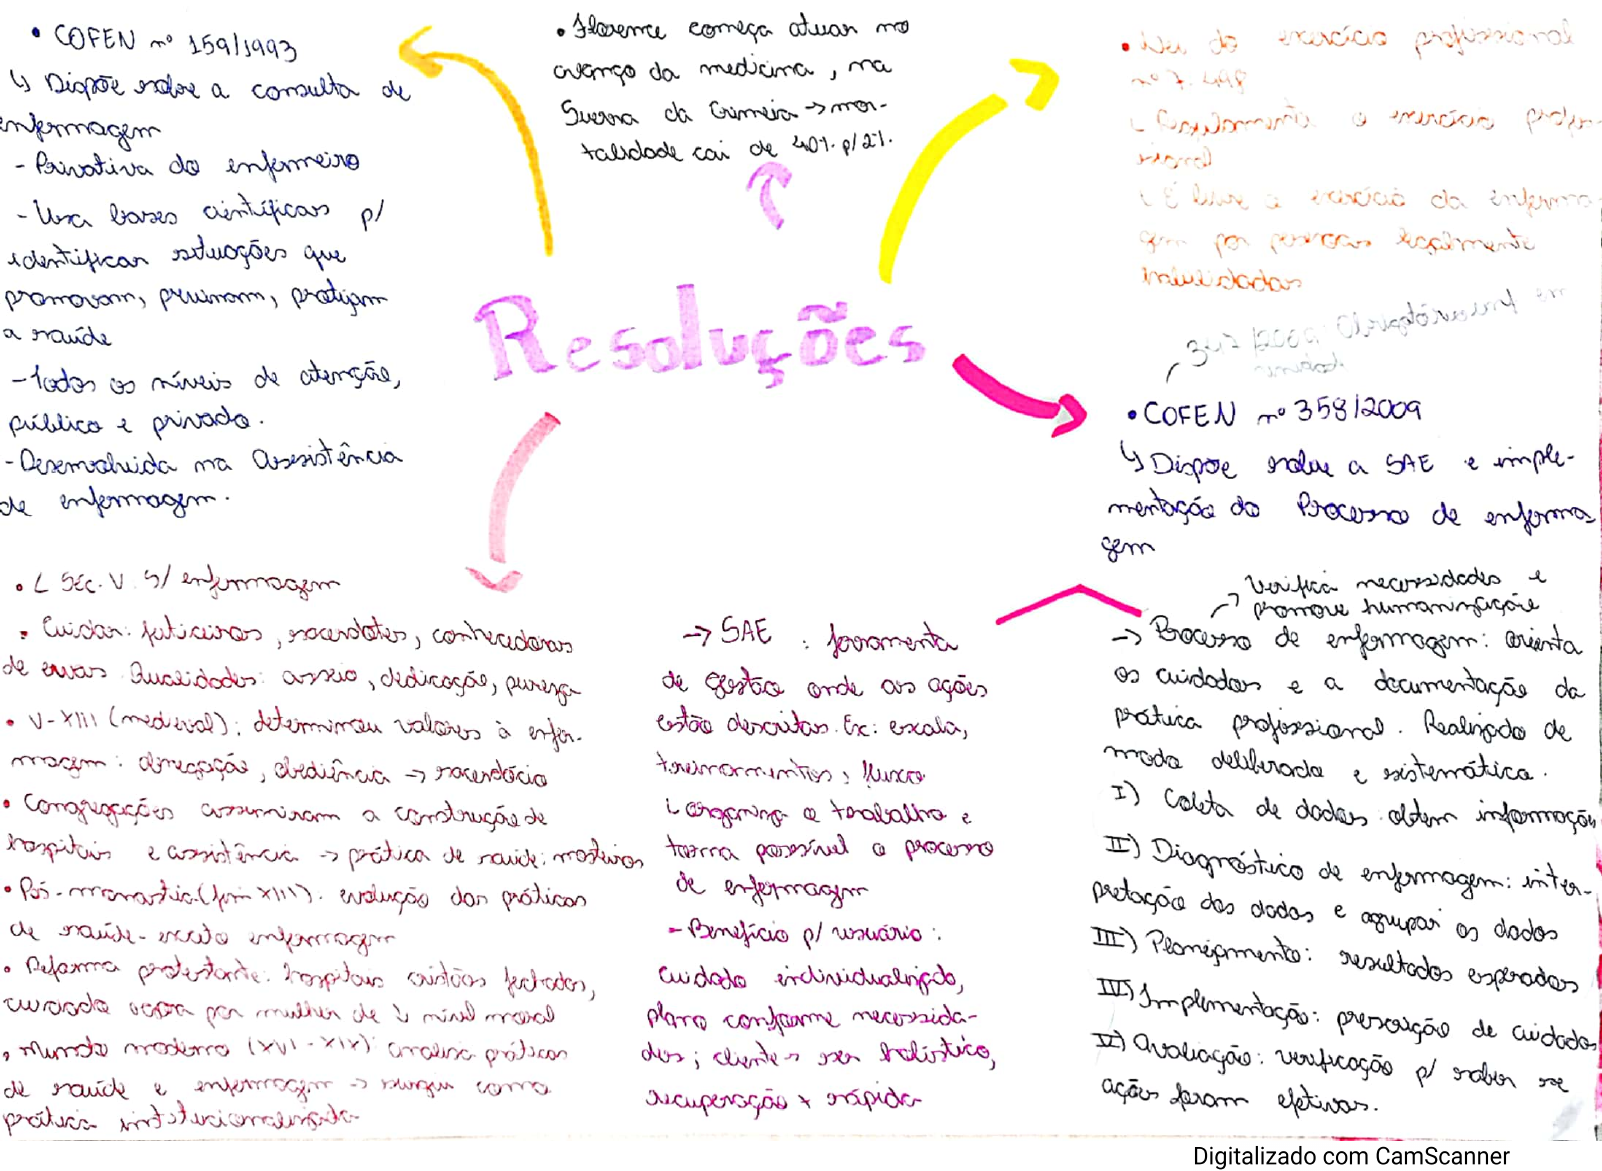 • COFEN nº 159/1993
↳ Dispõe sobre a consulta de
enfermagem
- Privativa do enfermeiro
- Usa bases científicas p/
identificar situações que
promovam, previnam, protejam
a saúde
- Todos os níveis de atenção,
público e privado.
- Desenvolvida na Assistência
de enfermagem.
• Florence começa atuar no
avanço da medicina, na
Guerra da Crimeia → mor-
talidade cai de 40% p/ 2%.
• Lei do exercício profissional
nº 7.498
↳ Regulamenta o exercício profis-
sional
↳ É livre o exercício da enferma-
gem por pessoas legalmente
habilidadas
Resoluções
• COFEN nº 358/2009
↳ Dispõe sobre a SAE e imple-
mentação do Processo de enferma
gem
• < Séc. V. S/ enfermagem
• Cuidar: feiticeiros, sacerdotes, conhecedoras
de ervas. Qualidades: asseio, dedicação, pureza
• V-XIII (medieval): determinou valores à enfer-
magem: abnegação, obediência → sacerdócio
• Congregações assumiram a construção de
hospitais e assistência → prática de saúde: mosteiros
• Pós-monástica (fim XIII): evolução das práticas
de saúde - exceto enfermagem
• Reforma protestante: hospitais cristãos fechados,
cuidado por mulher de ↓ nível moral
• Mundo moderno (XVI - XIX): analisa práticas
de saúde e enfermagem → surgiu como
prática institucionalizada
→ SAE : ferramenta
de gestão onde as ações
estão descritas. Ex: escala,
treinamentos, fluxo
↳ organiza o trabalho e
torna possível o processo
de enfermagem
- Benefício p/ usuário:
cuidado individualizado,
plano conforme necessida-
des; cliente = ser holístico,
recuperação + rápida
Verifica necessidades e
promove humanização
→ Processo de enfermagem: orienta
os cuidados e a documentação da
prática profissional. Realizado de
modo deliberado e sistemático.
I) Coleta de dados: obtem informações
II) Diagnóstico de enfermagem: inter-
pretação dos dados e agrupar os dados
III) Planejamento: resultados esperados
IIII) Implementação: prescrição de cuidados
V) Avaliação: verificação p/ saber se
ações foram efetivas.
Digitalizado com CamScanner